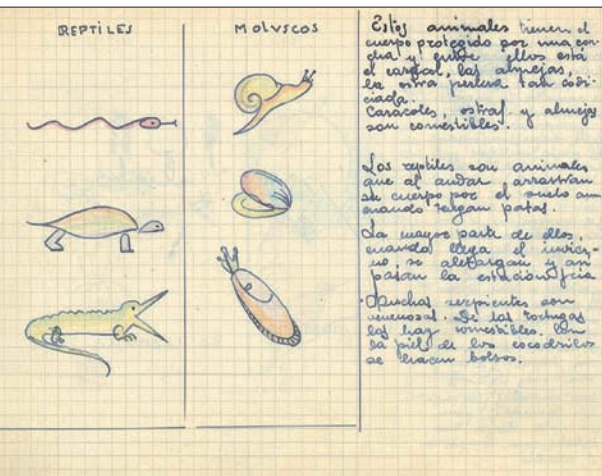 REPTILES
MOLUSCOS
Estos animales tienen el
cuerpo protegido por una con-
cha y entre ellos está
el caracol, las almejas,
la ostra perlera tan codi-
ciada.
Caracoles, ostras y almejas
son comestibles.
Los reptiles son animales
que al andar arrastran
su cuerpo por el suelo aun
cuando tengan patas.
La mayor parte de ellos,
cuando llega el invier-
no, se aletargan y así
pasan la estación fría
Muchas serpientes son
venenosas. De las tortugas
las hay comestibles. Con
la piel de los cocodrilos
se hacen bolsos.